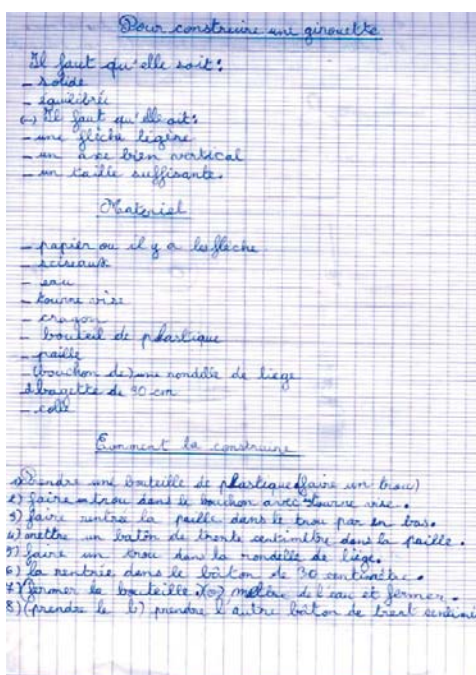 Pour construire une girouette
Il faut qu'elle soit :
_ solide
_ équilibrée
(-) Il faut qu'elle ait :
_ une flèche légère
_ un axe bien vertical
_ un taille suffisante.
Materiel
_ papier ou il y a la flèche
_ sciseaux
_ eau
_ tourne vise
_ crayon
_ bouteil de plastique
_ paille
_ (bouchon de) une rondelle de liege
2 bagette de 30 cm
_ colle
Comment la construire
1) Prendre une bouteille de plastique (faire un trou)
2) faire un trou dans le bouchon avec tourne vise.
3) faire rentré la paille dans le trou par en bas.
4) mettre un batôn de trente centimètre dans la paille.
5) faire un trou dans la rondelle de liège.
6) la rentrée dans le bâton de 30 centimètre.
7) fermer la bouteille. mettre de l'eau et fermer.
8) (prendre le b) prendre l'autre bâton de trent